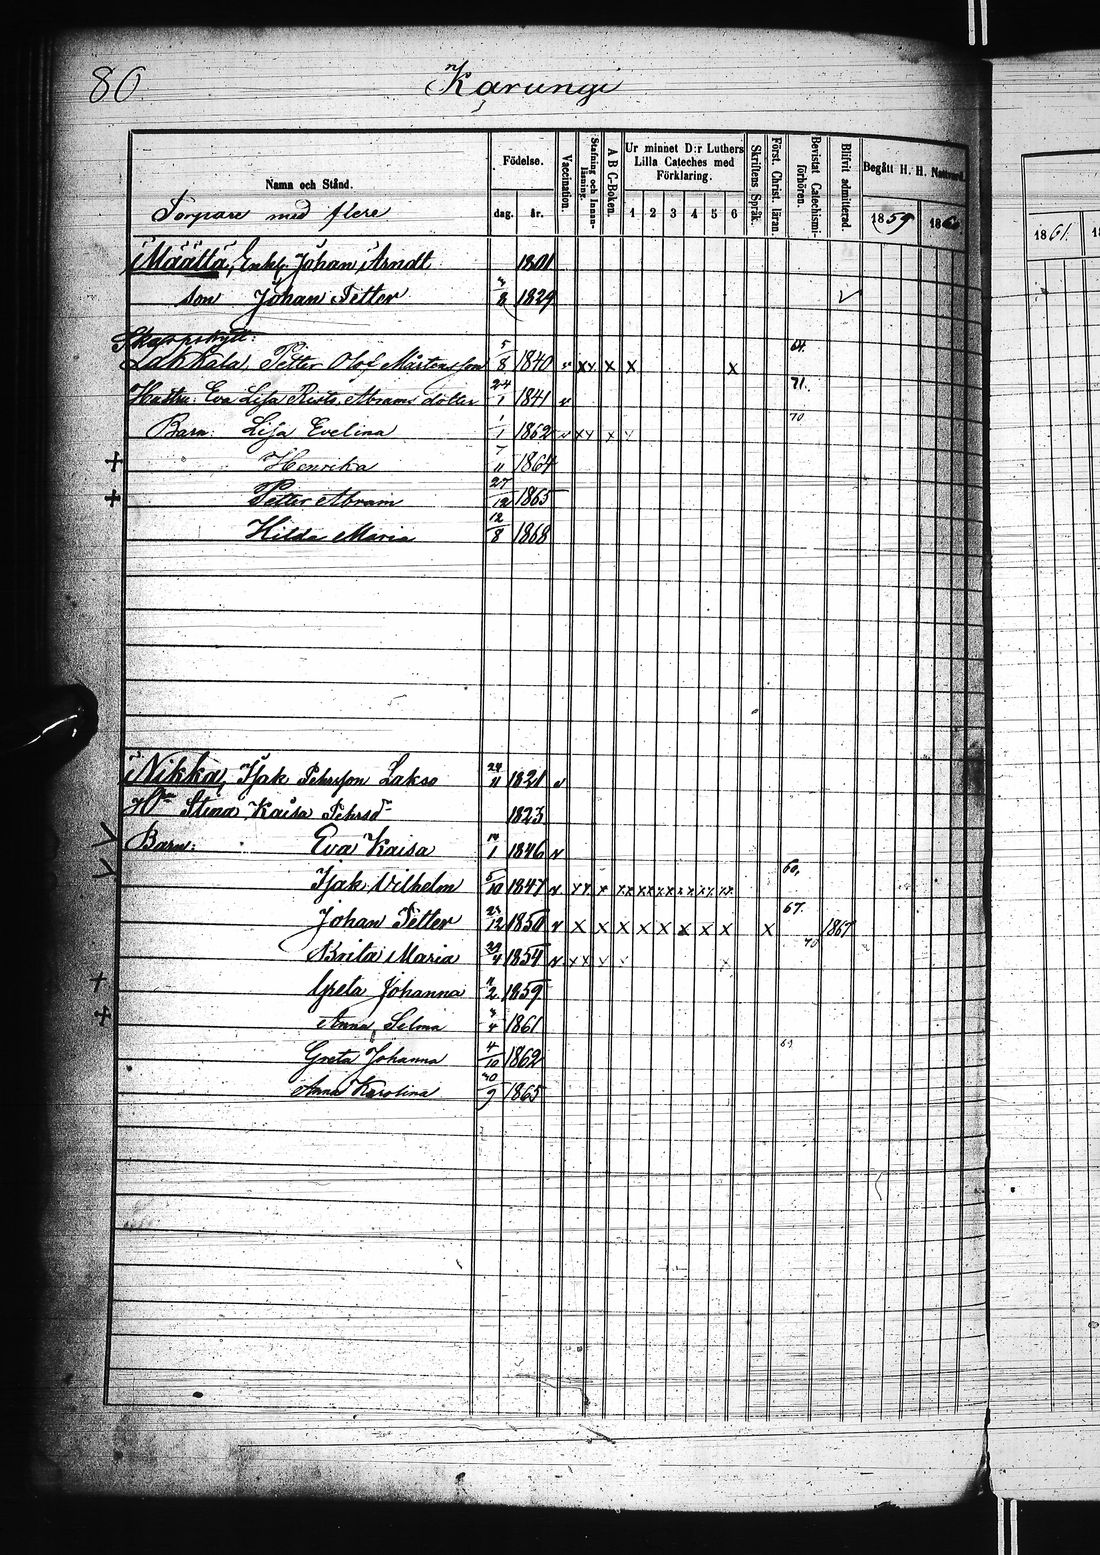 80
Karungi
Nama och Stånd.
Torpare med flere
Födelse.
dag. år.
Vaccination.
Stafning och Innanläsning.
A B C-Boken.
Ur minnet D:r Luthers Lilla Cateches med Förklaring.
1 2 3 4 5 6
Skriftens Språk.
Först. Christ. läran.
Bevistat Catechismiförhören.
Blifvit admitterad.
Begått H. H. Nattvard.
1859 186
1861.
Määttä, Enkl. Johan Arndt 1801
son Johan Petter 1829
64.
Lakkala, Petter Olof Mårtensson 5/8 1840 v x x x x x
71.
Hustru: Eva Lisa Abrams dotter 24/1 1841 v
70
Barn: Lisa Evelina 1/1 1862
+ Henrika 7/11 1864
+ Petter Abram 27/12 1865
Hilda Maria 12/8 1868
Nikka, Isak Pehrsson Lakso 24/11 1821 v
H:n Stina Kaisa Pehrsd 1823
Barn: Eva Kaisa 14/1 1846 v
60.
Isak Vilhelm 5/10 1847 v
67.
Johan Petter 1850 v x x x x x x x x x 1867
70
Brita Maria 1854 v
+ Greta Johanna 1859
+ Anna Selma 1861
Greta Johanna 4/10 1862
Anna Karolina 1865